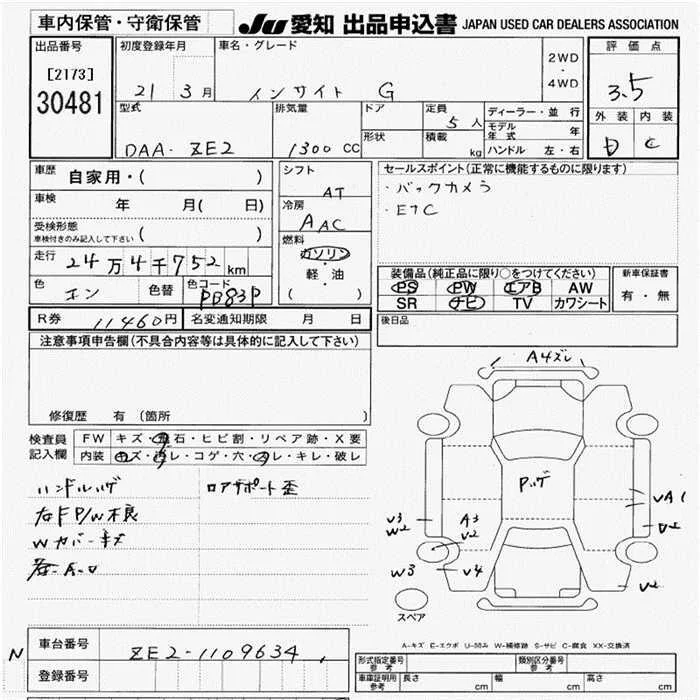 車内保管・守衛保管
JU 愛知 出品申込書 JAPAN USED CAR DEALERS ASSOCIATION
出品番号
[2173]
30481
初度登録年月
21 3月
車名・グレード
インサイト G
2WD
・
4WD
評価点
3.5
外装 内装
D C
型式
DAA- ZE2
排気量
1300 CC
ドア
形状
定員
5人
積載
kg
ディーラー・並行
モデル年式 年
ハンドル 左・右
車歴 自家用・( )
車検 年 月( 日)
受検形態
車検付きのみ記入して下さい ( )
走行 24万4千752km
色 コン 色替 色コード PB83P
シフト
AT
冷房
AAC
燃料
ガソリン
軽・油
( )
セールスポイント(正常に機能するものに限ります)
・バックカメラ
・ETC
装備品(純正品に限り○をつけてください)
PS PW エアB AW
SR ナビ TV カワシート
新車保証書
有・無
R券 11460円 名変通知期限 月 日
後日品
注意事項申告欄(不具合内容等は具体的に記入して下さい)
修復歴 有 (箇所 )
検査員記入欄
FW キズ・飛石・ヒビ割・リペア跡・X要
内装 キズ・汚レ・コゲ・穴・スレ・キレ・破レ
ハンドルハゲ ロアサポート歪
右F P/W不良
Wカバーキズ
A4ズレ
Pハゲ
VA1
V3
W2
A3
V2
W3
V4
V2
スペア
A-キズ E-エクボ U-凹み W-補修跡 S-サビ C-腐食 XX-交換済
N
車台番号 ZE2-1109634
登録番号
形式指定番号 参考
類別区分番号 参考
車庫証明用 参考 長さ cm 幅 cm 高さ cm